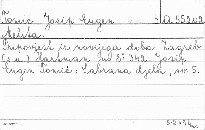 Tomić Josip Eugen A 55202
Melita.
Pripovijest iz novijega doba. Zagreb
(s.a.) Hartman 8° 342. Josip
Eugen Tomić: Sabrana djela, sv. 5.